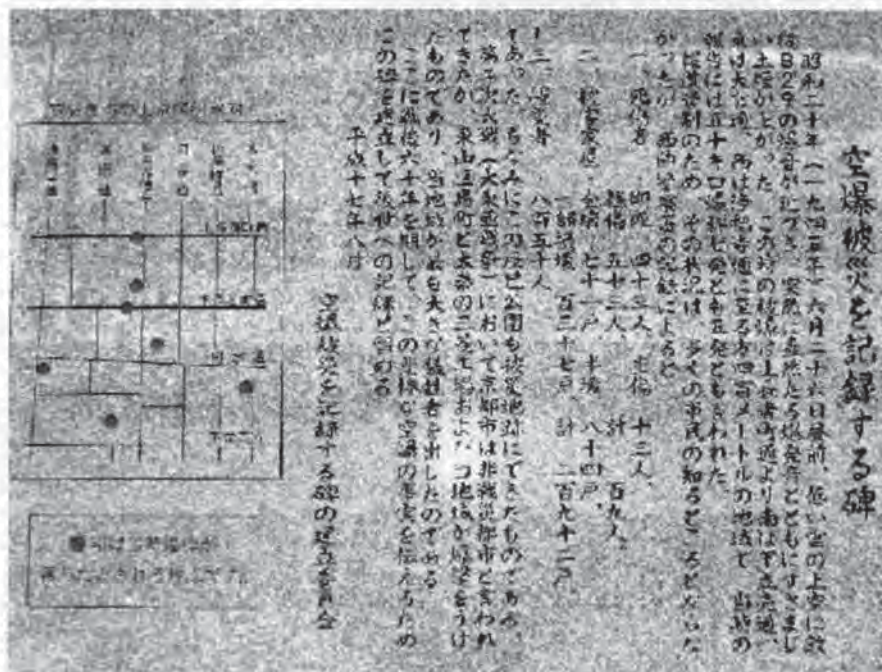 空爆被災を記録する碑
昭和二十年（一九四五年）六月二十六日昼前、厚い雲の上空に敵
機B29の爆音が近づき、突然に轟然たる爆発音とともにすさまじ
い土煙が上がった。この時の被爆は上長者町通より南は下立売通、
東は大宮通、西は浄福寺通に至る方四百メートルの地域で、当時の
報告には五十キロ爆弾七発とも五発ともいわれた。
報道管制のため、その状況は、多くの市民の知るところとならな
かったが、西陣警察署の記録によると
一、死傷者 即死 四十三人、重傷 十三人、
軽傷 五十三人、計 百九人、
二、被害家屋 全壊 七十一戸、半壊 八十四戸、
一部損壊 百三十七戸、計 二百九十二戸
三、罹災者 八百五十人
であった。ちなみにこの辰巳公園も被災地跡にできたものである。
第二次大戦（大東亜戦争）において京都市は非戦災都市と言われ
てきたが、東山馬町と太秦の三菱工場および当地域が爆撃をうけ
たものであり、当地域が最も大きな犠牲者を出したのである
ここに戦後六十年を期して、この悲惨な空爆の事実を伝えるため
この碑を建立して後世への記録と留める
平成十七年八月
空爆被災を記録する碑の建立委員会